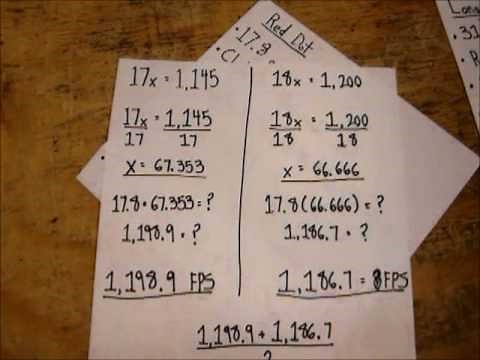 Red Dot
• 17.8
17x = 1,145
17x = 1,145
17 17
x = 67.353
17.8 • 67.353 = ?
1,198.9 = ?
1,198.9 FPS
18x = 1,200
18x = 1,200
18 18
x = 66.666
17.8 (66.666) = ?
1,186.7 = ?
1,186.7 = FPS
1,198.9 + 1,186.7
• 31